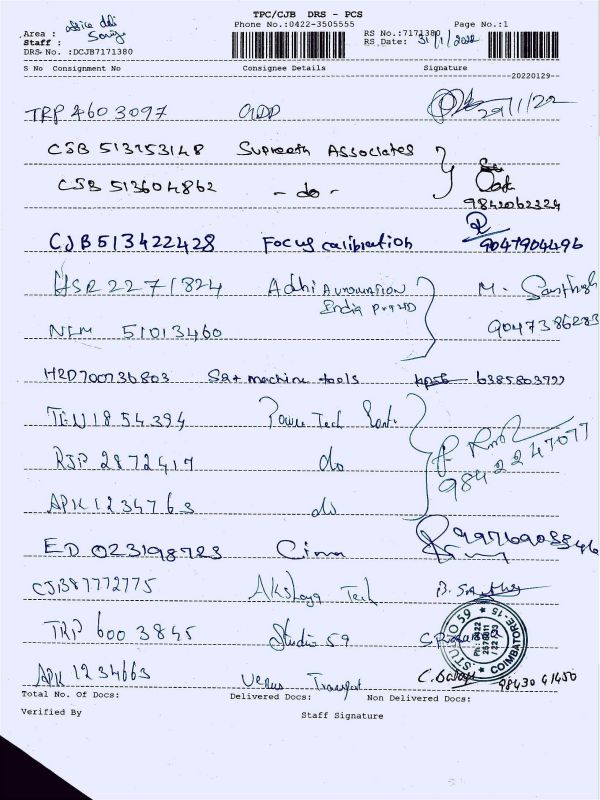 TPC/CJB DRS - PCS
Area : office deli
Phone No.:0422-3505555
Page No.:1
Staff :
RS No.:7171380
DRS No. :DCJB7171380
RS Date: 31/1/2022
S No Consignment No Consignee Details Signature
20220129
TRP 4603097 29/1/22
CSB 513253148 Supreeth Associates
CSB 513604862 - do - 9842062324
CJB513422428 Focus calibration 9047904496
HSR 2271824 Adhi Automation M. Santhosh
India Pvt Ltd
NFM 51013460 9047386283
H2D700736803 Sat machine tools 6385803722
TEN 1854394 Power Tech
RJP 2872417 do 9842247077
APK 1234763 do
ED 023198723
CJB87772775 Akshaya Tech
TRP 6003845 Studio 59
STUDIO 59 COIMBATORE-15
APK 1234663 Venus Transport C. Balaji 98430 41450
Total No. Of Docs: Delivered Docs: Non Delivered Docs:
Verified By Staff Signature